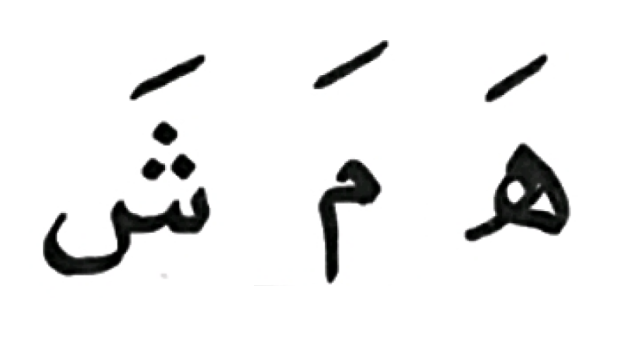 هَ مَ شَ